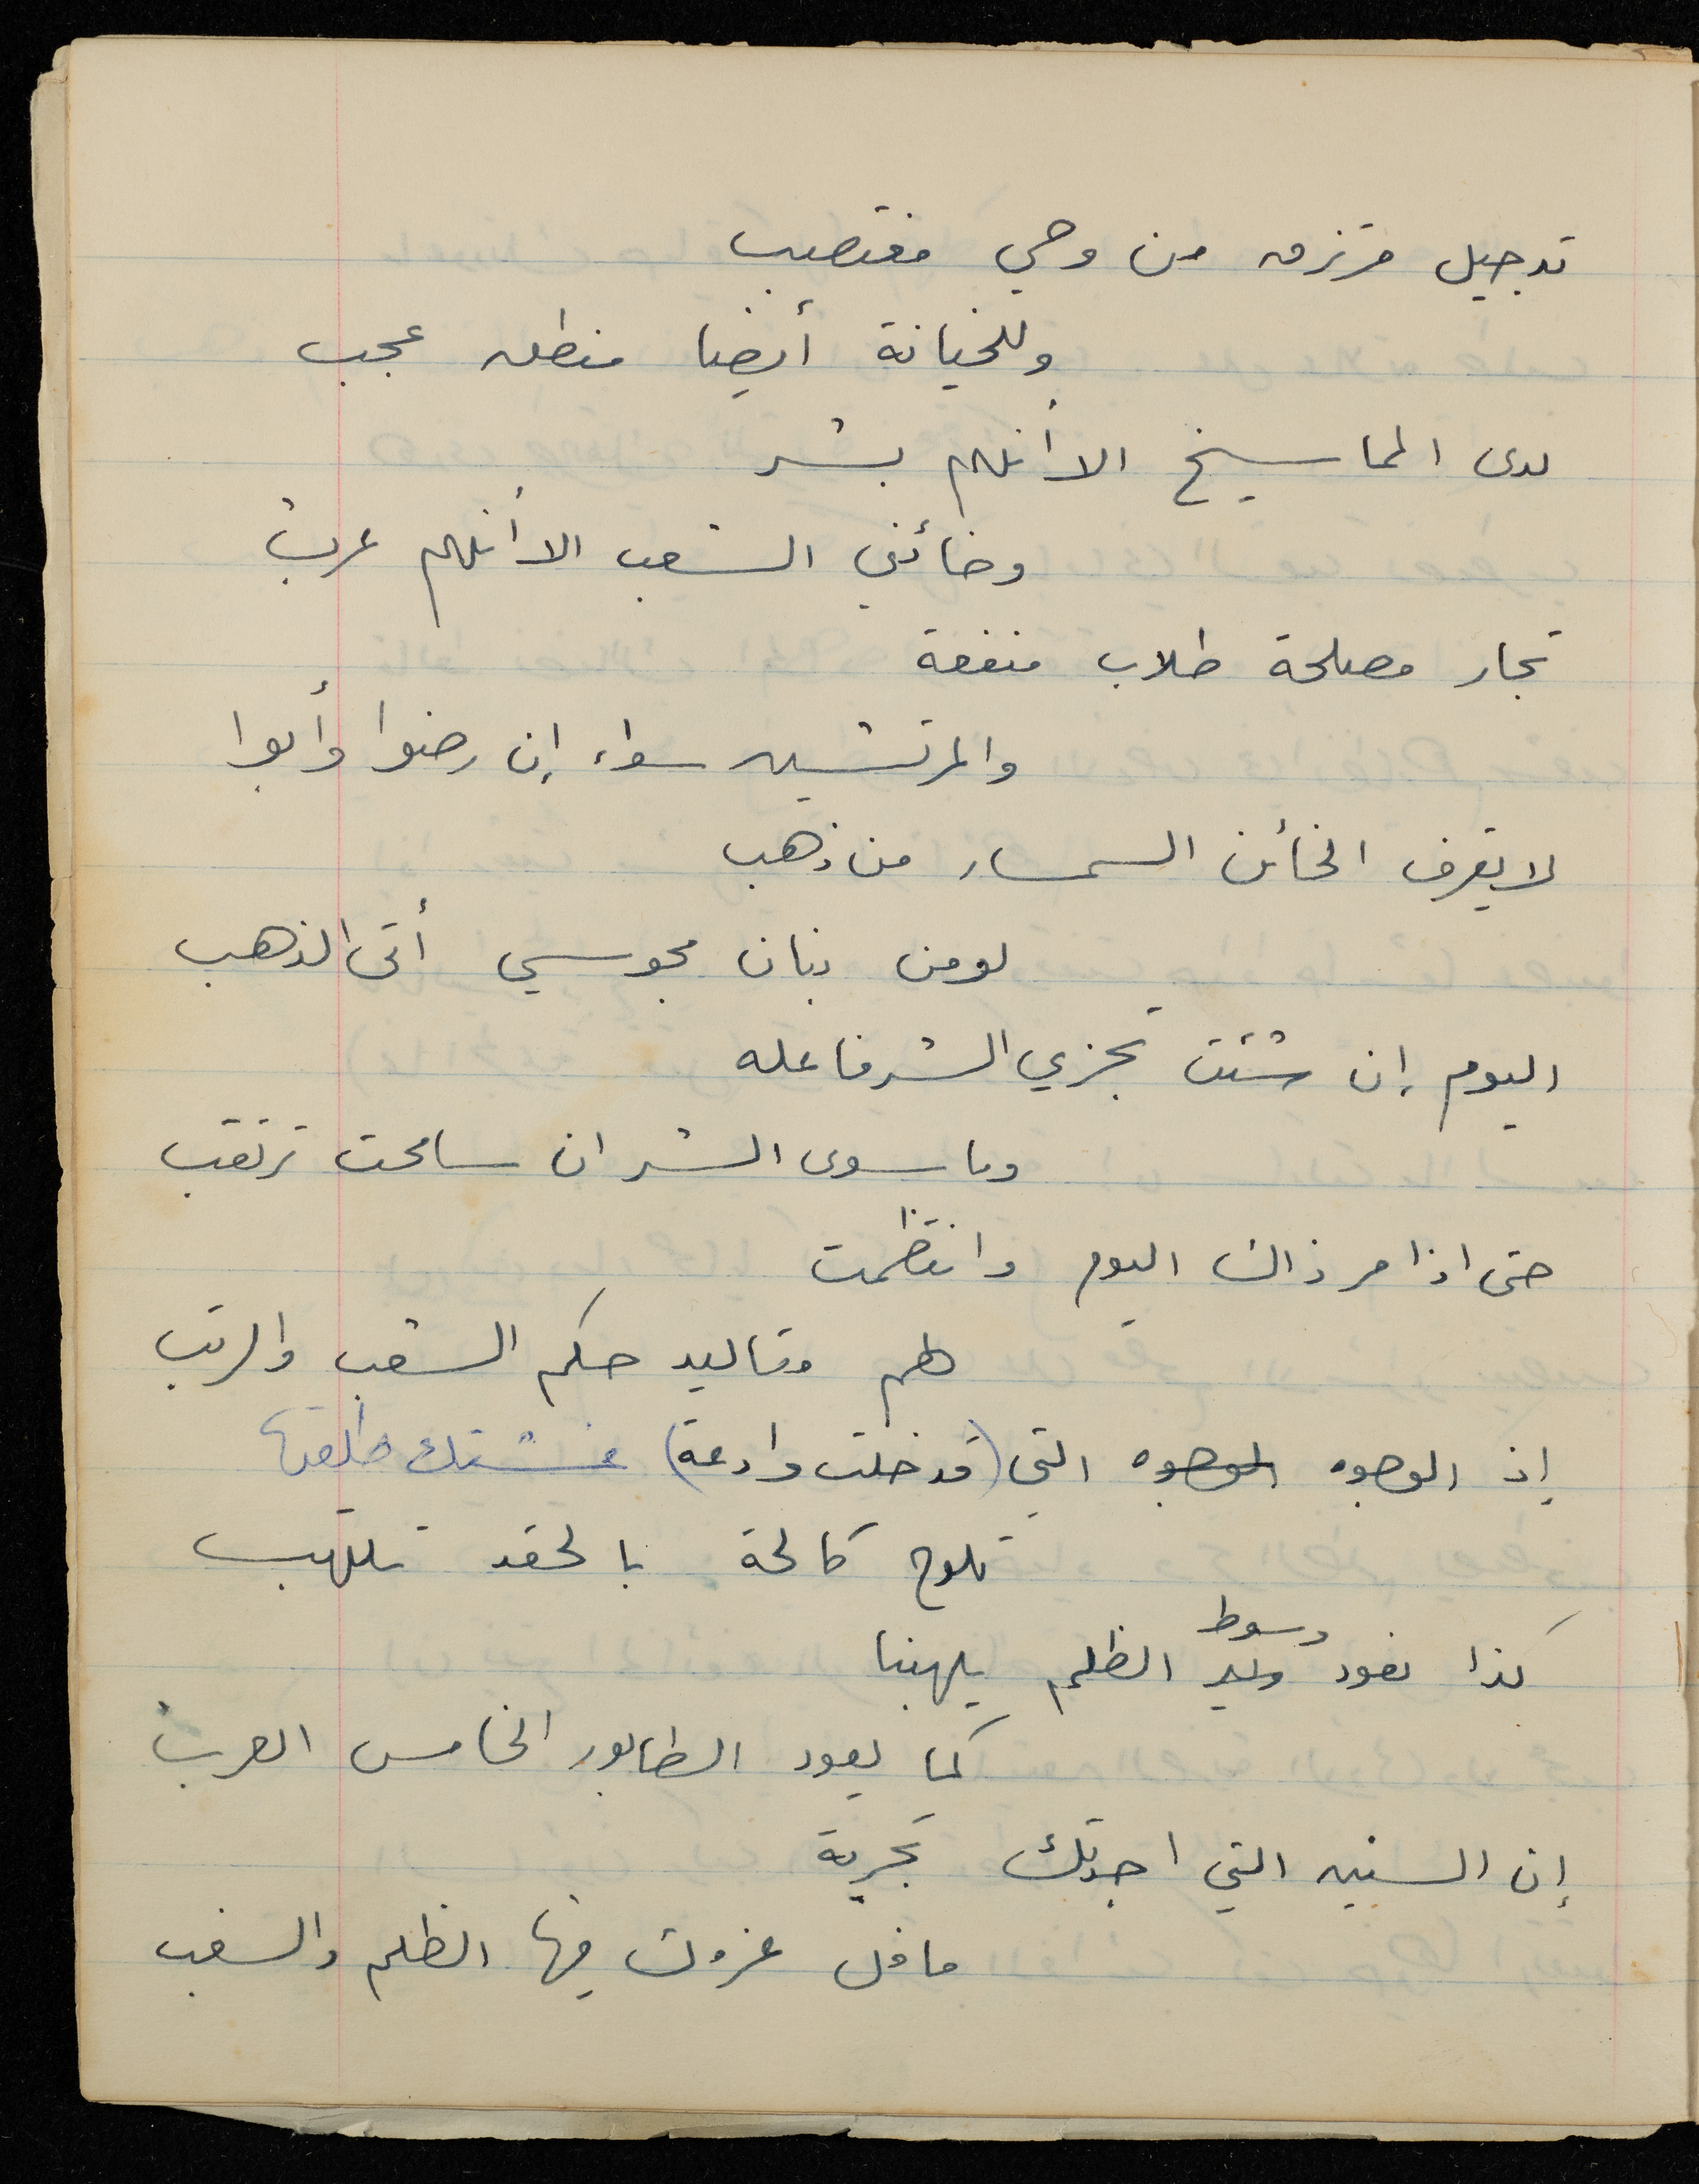 تدجيل مرتزق من وحي مغتصب
وللخيانة أيضا منطق عجب
لدى المماسيخ الا أنهم بشر
وخائني الشعب الا أنهم عرب
تجار مصلحة طلاب منفعة
والمرتشين سواء إن رضوا وأبوا
لا يعرف الخائن السمسار من ذهب
لو من بنان مجوسي أتى الذهب
اليوم إن شئت تجزي الشر فاعله
وما سوى الشر ان سامحت ترتقب
حتى اذا مر ذاك اليوم وانتظمت
لهم مقاليد حكم الشعب والرتب
إذ الوجوه الوجوه التي (قد خلت وادعة) غشتك طلعتها
تلوح كالحة بالحقد تلتهب
وسوط
كذا نعود الظلم يلهبنا
كما يعود الطابور الخامس الحرب
إن السنين التي اجدتك تجربة
ما فل عزمك فيها الظلم والسغب